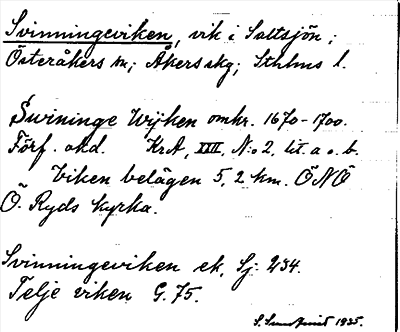 Svinningeviken, vik i Saltsjön;
Österåkers sn; Åkers skg; Sthlms l.
Swininge Wijken omkr. 1670-1700.
Förf. okd. KrA, XVII, N:o 2, lit. a o. b.
Viken belägen 5,2 km. ÖNÖ
Ö. Ryds kyrka.
Svinningeviken ek, Sj: 234.
Telje viken G. 75.
S. 1935.